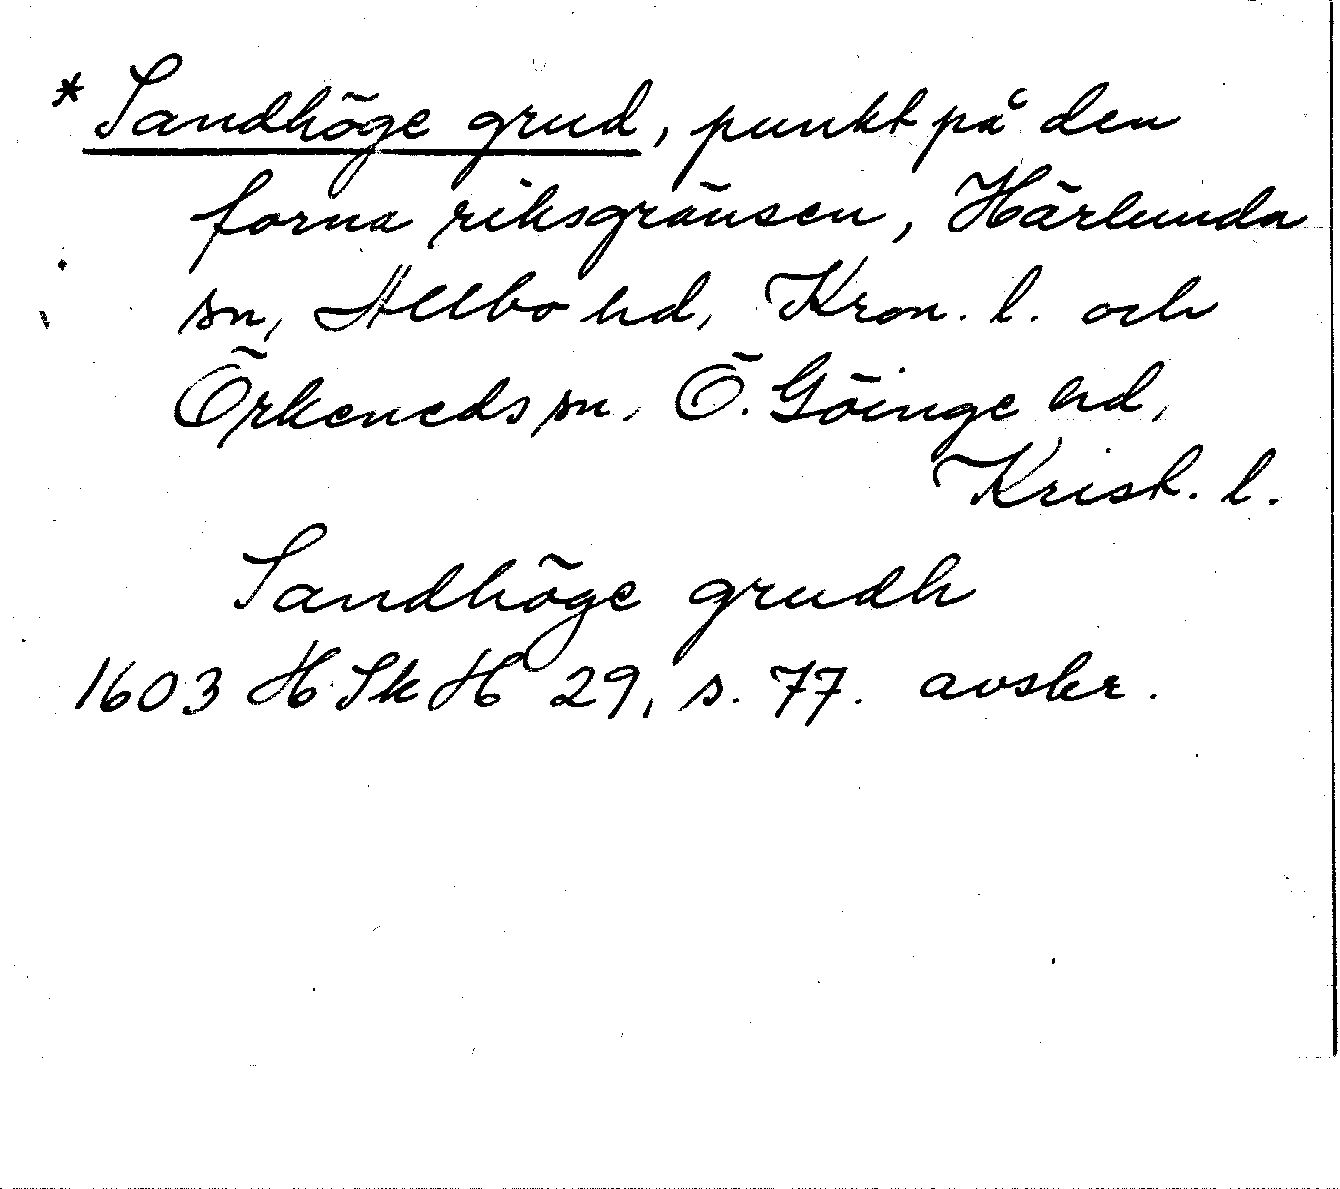 * Sandhöge grud, punkt på den
forna riksgränsen, Härlunda
sn, Allbo hd, Kron. l. och
Örkeneds sn, Ö. Göinge hd,
Krist. l.
Sandhöge grudh
1603 HSkH 29, s. 77. avskr.